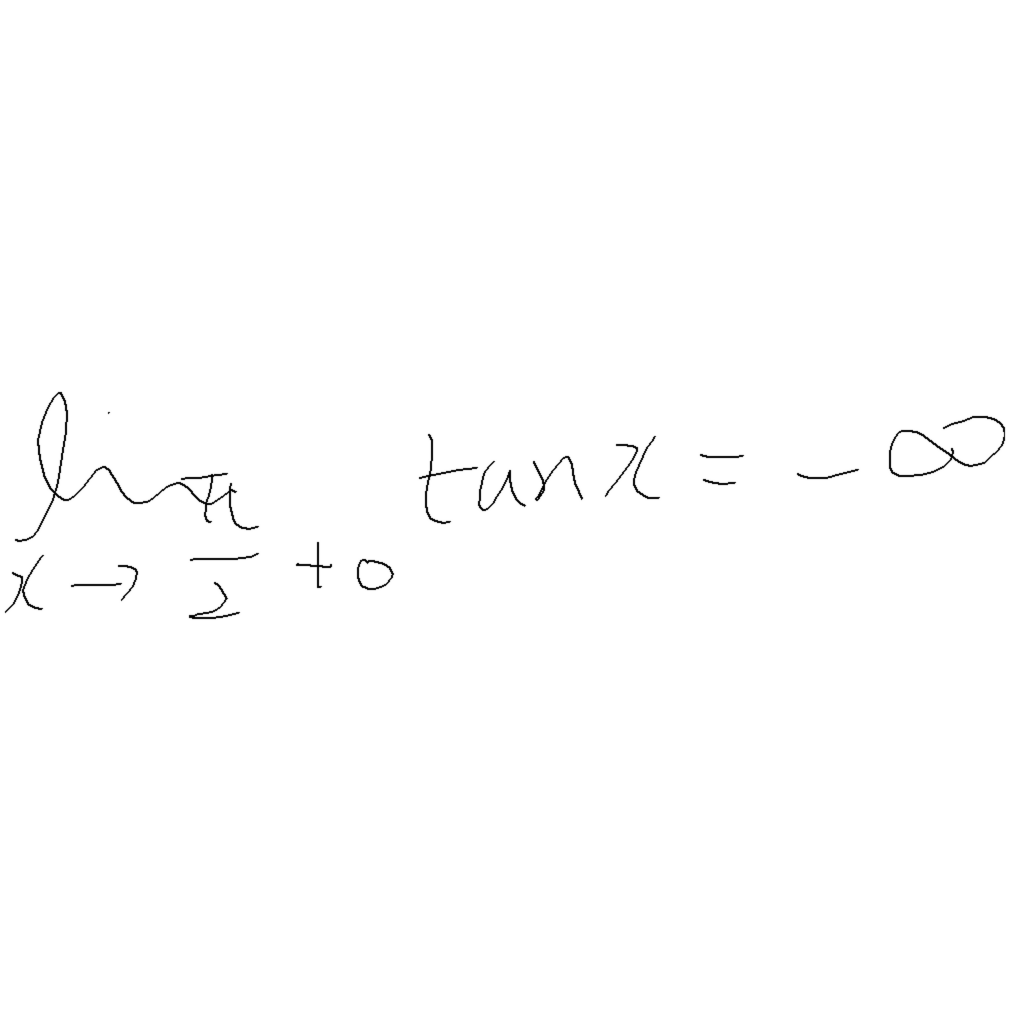 lim_{x→π/2+0} tan x = -∞